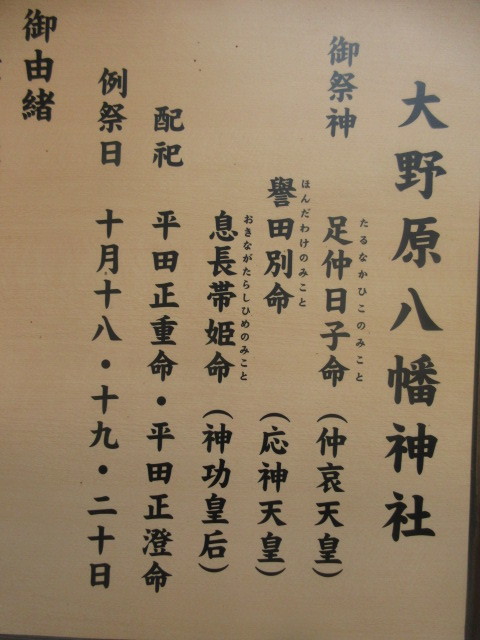 大野原八幡神社
御祭神
たるなかひこのみこと
足仲日子命（仲哀天皇）
ほんだわけのみこと
譽田別命（応神天皇）
おきながたらしひめのみこと
息長帯姫命（神功皇后）
配祀　平田正重命・平田正澄命
例祭日　十月十八・十九・二十日
御由緒